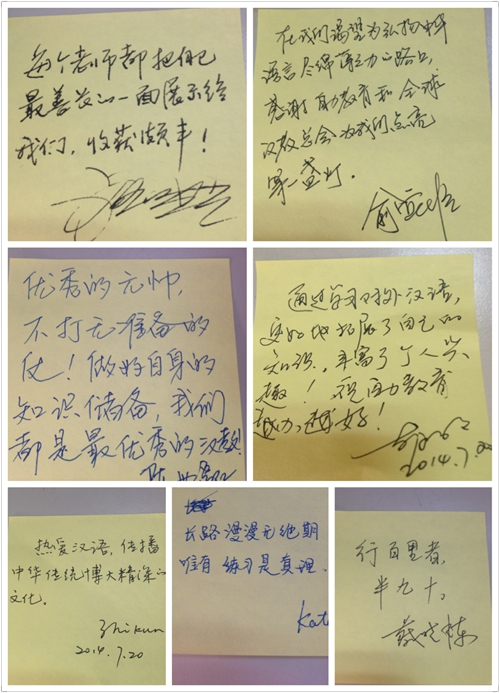 每个老师都把他们
最善长的一面展示给
我们，收获颇丰！
在我们渴望为弘扬中华
语言尽绵薄之力的路口，
感谢自助教育和全球
汉教总会为我们点亮
第一盏灯。
优秀的元帅，
不打无准备的
仗！做好自身的
知识储备，我们
都是最优秀的汉教
通过学习对外汉语，
更好地拓展了自己的
知识，丰富了个人兴
趣！祝自助教育
越办越好！
2014.7.20
热爱汉语，传播
中华传统博大精深的
文化。
Zhikun
2014.7.20
长路漫漫无绝期
唯有练习是真理.
Kat
行百里者，
半九十。